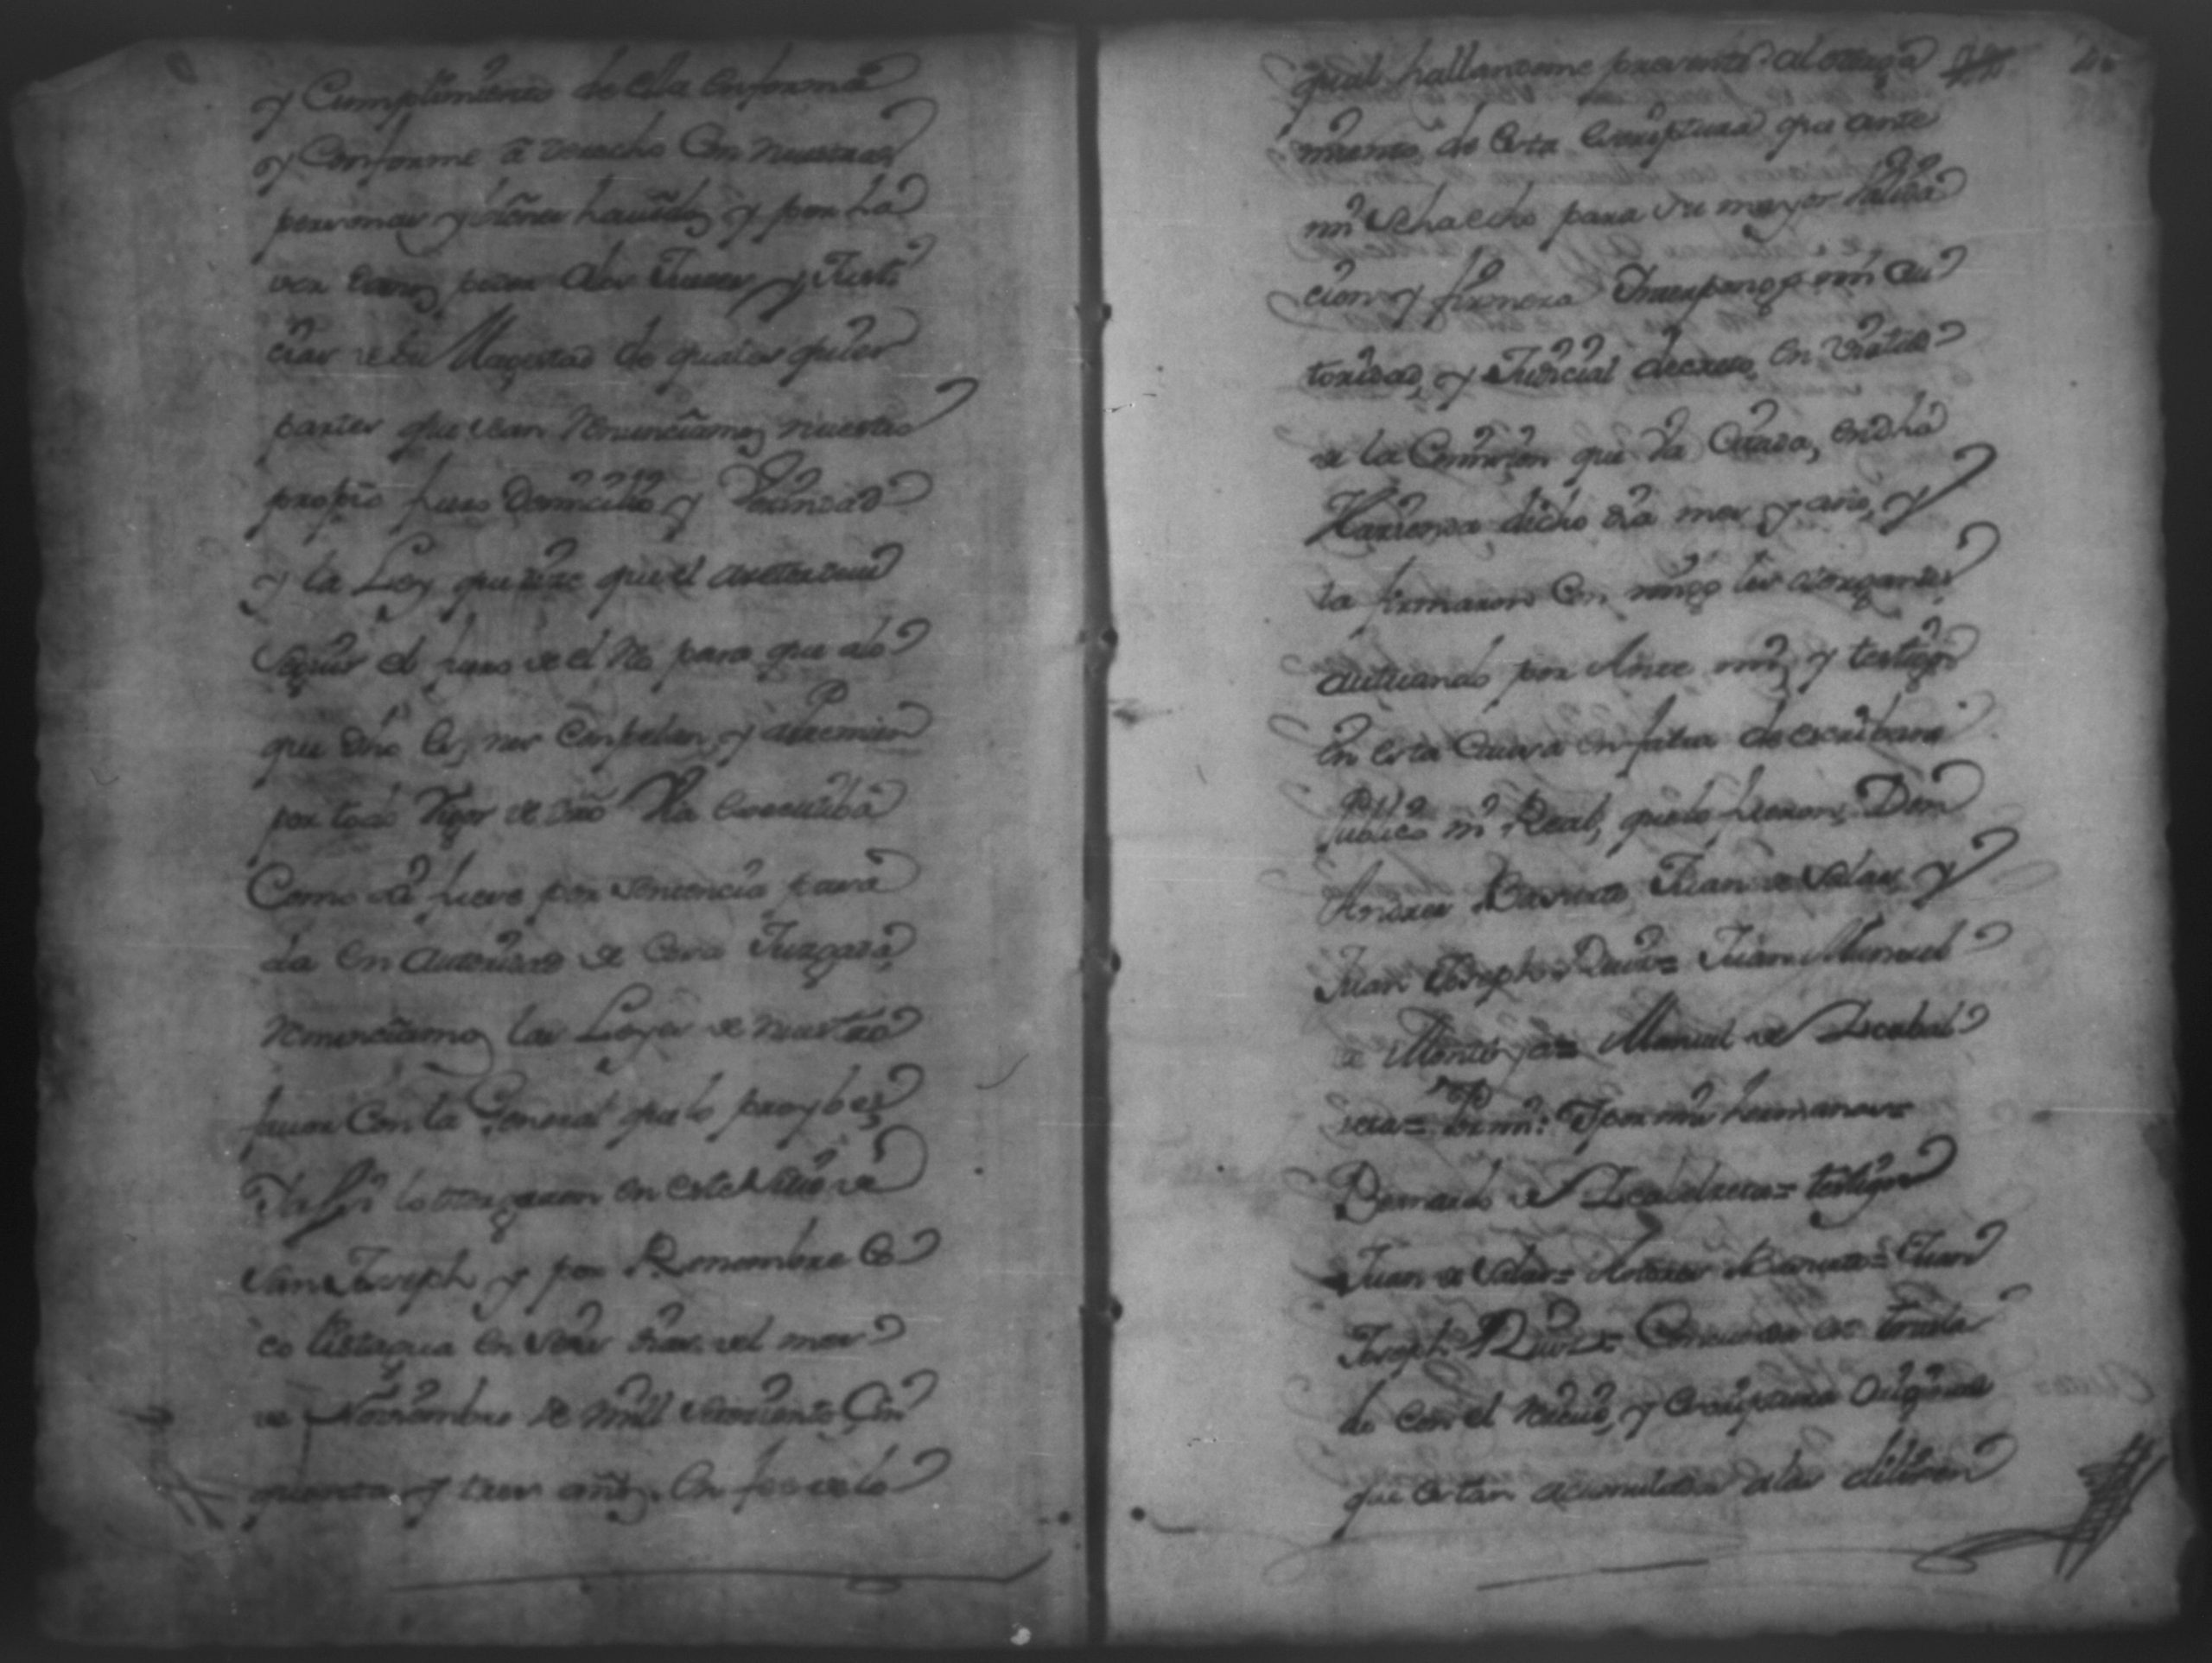 y Cumplimiento de ella en forma
y Conforme â derecho Con nuestras
personas y vienes havidos y por ha
ver damos poder a los Jueses y Justi
cias de su Magestad de quales quier
partes que sean renunciamos nuestro
propio fuero Domicilio y Vecindad
y la Ley que dize que el actor deve
Seguir el fuero de el Reo para que a lo
que dho es, nos Conpelan y apremien
por todo Rigor de dro Via executiba
Como si fuere por sentencia pasa
da en autoridad de Cosa Juzgada
renunciamos las Leyes de nuestro
favor Con la General que lo proybe
Y assi lo otorgaron en este sitio de
San Joseph y por Renombre
en seis dias del mes
de Noviembre de mill setesientos Cin
quenta y tres años. En fee de lo
qual hallandome presente al otorga
miento de esta Escriptura que ante
mi se ha echo para su mayor Valida
cion y firmeza Interpongo mi au
toridad, y Judicial decreto en virtud
de la Comision que va Citada, en dha
Hazienda dicho dia mes y año, y
la firmaron Con migo los otorgantes
autuando por Ante mi y testigos
en esta Causa en falta de escribano
Publico ni Real, que lo fueron, Don
Andres Juan de Salas y
Juan Joseph Ruiz= Juan Manuel
de = Manuel de Escabal
= Por mi: Y por mis hermanos=
Bernardo de = testigos
Juan de Salas= Andres = Juan
Joseph Ruiz= Concuerda este trasla
do Con el recivo, y escriptura Original
que estan acumulados a las diligen